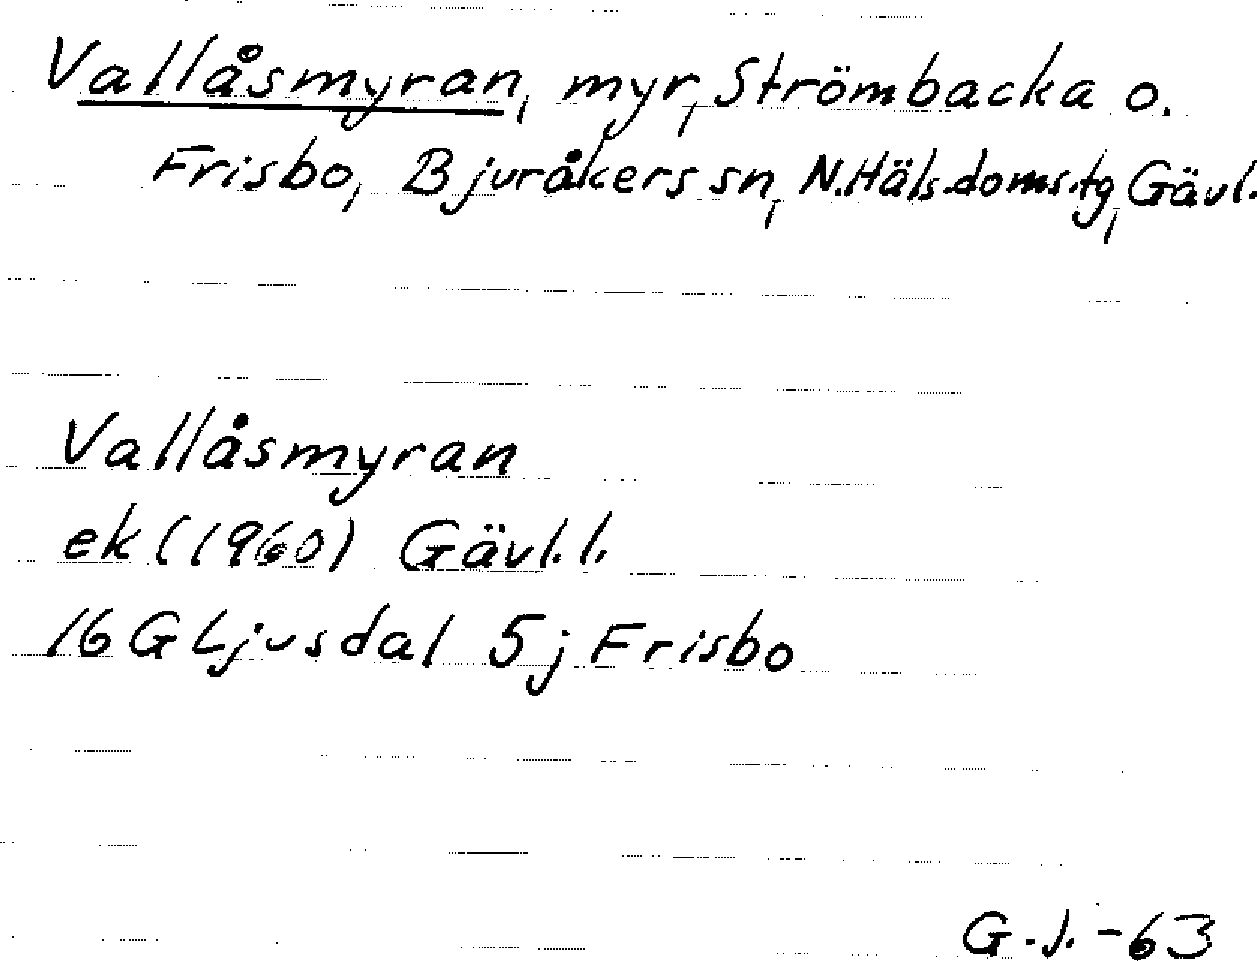 Vallåsmyran, myr, Strömbacka o.
Frisbo, Bjuråkers sn, N.Häls.doms.tg, Gävl.
Vallåsmyran
ek (1960) Gävl. l.
16 G Ljusdal 5j Frisbo
G.J. -63